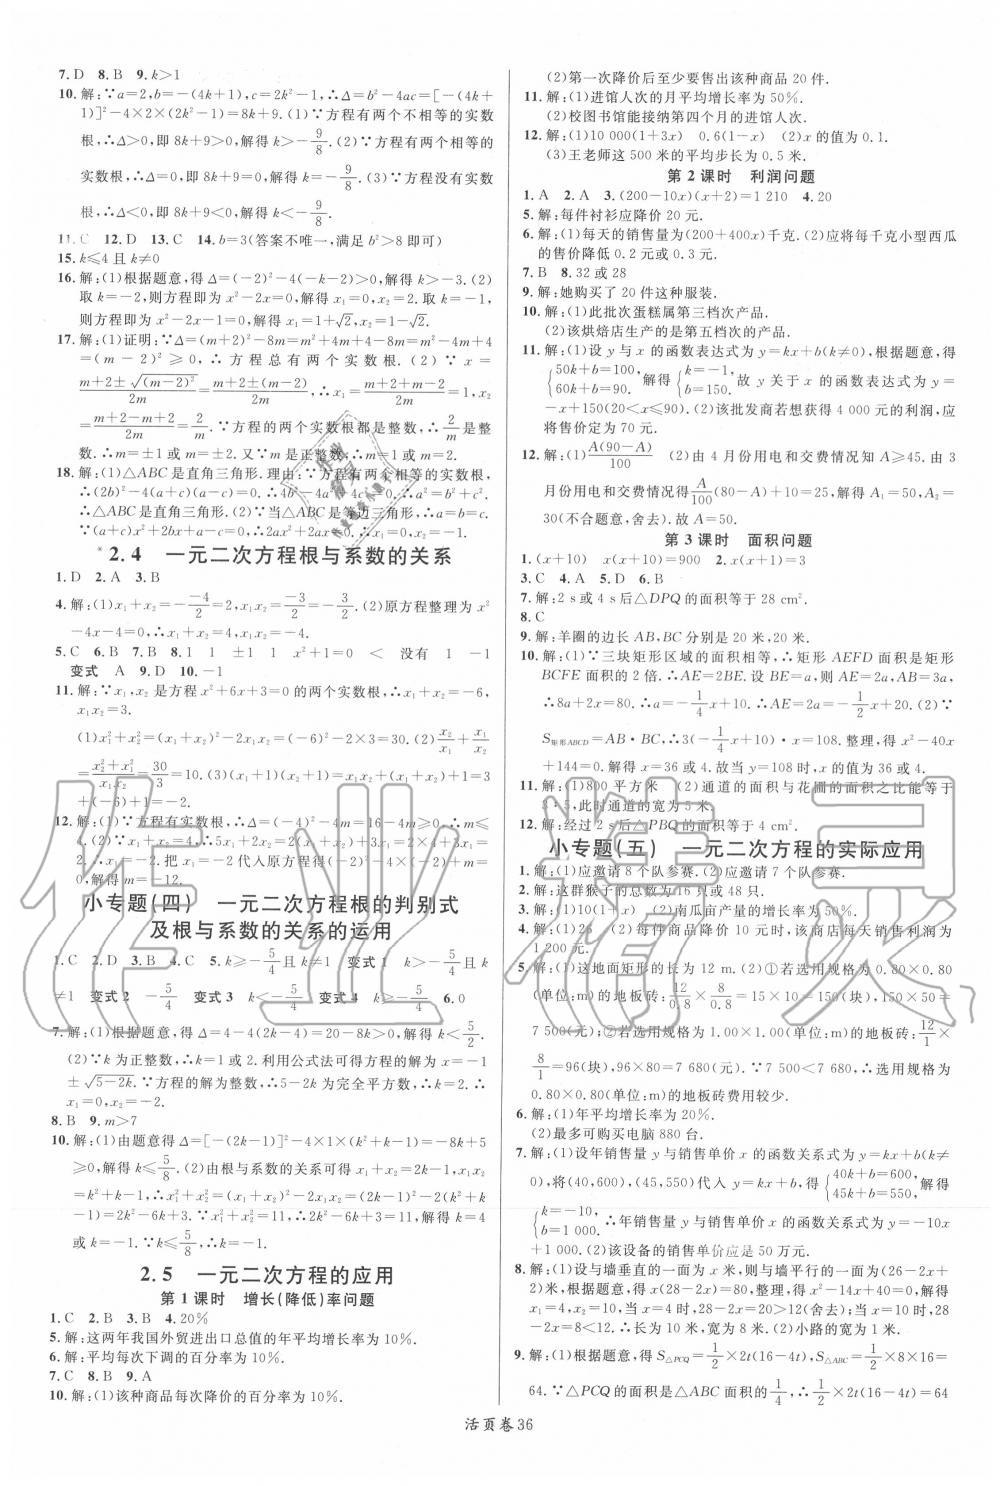 7. D  8. B  9. k>1
10. 解:∵a=2,b=-(4k+1),c=2k²-1,∴Δ=b²-4ac=[-(4k+
1)]²-4×2×(2k²-1)=8k+9. (1)∵方程有两个不相等的实数
根,∴Δ>0,即 8k+9>0,解得 k>-9/8. (2)∵方程有两个相等的
实数根,∴Δ=0,即 8k+9=0,解得 k=-9/8. (3)∵方程没有实数
根,∴Δ<0,即 8k+9<0,解得 k<-9/8.
11. C  12. D  13. C  14. b=3(答案不唯一,满足 b²>8 即可)
15. k≤4且k≠0
16. 解:(1)根据题意,得 Δ=(-2)²-4(-k-2)>0,解得 k>-3. (2)
取 k=-2,则方程即为 x²-2x=0,解得 x₁=0,x₂=2. 取 k=-1,
则方程即为 x²-2x-1=0,解得 x₁=1+√2,x₂=1-√2.
17. 解:(1)证明:∵Δ=(m+2)²-8m=m²+4m+4-8m=m²-4m+4
=(m-2)²≥0,∴方程总有两个实数根. (2)∵x=
(m+2±√(m-2)²)/2m=(m+2±(m-2))/2m,∴x₁=(m+2+m-2)/2m=1,x₂
=(m+2-m+2)/2m=2/m. ∵方程的两个实数根都是整数,∴2/m是整
数. ∴m=±1 或 m=±2. 又∵m是正整数,∴m=1 或 m=2.
18. 解:(1)△ABC是直角三角形. 理由:∵方程有两个相等的实数根,
∴(2b)²-4(a-c)(a+c)=0. ∴4b²-4a²+4c²=0. ∴a²=b²+c².
∴△ABC是直角三角形. (2)∵当△ABC是等边三角形,∴a=b=
c. ∵(a+c)x²+2bx+(a-c)=0,∴2ax²+2ax=0. ∴x₁=0,x₂=-1.
*2.4 一元二次方程根与系数的关系
1. D  2. A  3. B
4. 解:(1)x₁+x₂=-(-4/2)=2,x₁x₂=-3/2=-3/2. (2)原方程整理为 x²
-4x-4=0,∴x₁+x₂=4,x₁x₂=-4.
5. C  6. B  7. B  8. 1 1 ±1 1 x²+1=0 < 没有 1 -1
变式 A  9. D  10. -1
11. 解:∵x₁,x₂是方程 x²+6x+3=0 的两个实数根,∴x₁+x₂=-6,
x₁x₂=3.
(1)x₁²+x₂²=(x₁+x₂)²-2x₁x₂=(-6)²-2×3=30. (2)x₂/x₁+x₁/x₂
=(x₂²+x₁²)/x₁x₂=30/3=10. (3)(x₁+1)(x₂+1)=x₁x₂+(x₁+x₂)+1=3
+(-6)+1=-2.
12. 解:(1)∵方程有实数根,∴Δ=(-4)²-4m=16-4m≥0. ∴m≤
4. (2)∵x₁+x₂=4,∴5x₁+2x₂=2(x₁+x₂)+3x₁=2×4+3x₁=
2. ∴x₁=-2. 把 x₁=-2 代入原方程得(-2)²-4×(-2)+m=
0,解得 m=-12.
小专题(四) 一元二次方程根的判别式
及根与系数的关系的运用
1. C  2. D  3. B  4. C  5. k≥-5/4且k≠1  变式1 k>-5/4且k
≠1  变式2 -5/4  变式3 k>-5/4  变式4 k≥-5/4  6. 0
7. 解:(1)根据题意,得 Δ=4-4(2k-4)=20-8k>0,解得 k<5/2.
(2)∵k为正整数,∴k=1或2. 利用公式法可得方程的解为 x=-1
±√(5-2k). ∵方程的解为整数,∴5-2k为完全平方数. ∴k=2. ∴
x₁=0,x₂=-2.
8. B  9. m>7
10. 解:(1)由题意得 Δ=[-(2k-1)]²-4×1×(k²+k-1)=-8k+5
≥0,解得 k≤5/8. (2)由根与系数的关系可得 x₁+x₂=2k-1,x₁x₂
=k²+k-1,∴x₁²+x₂²=(x₁+x₂)²-2x₁x₂=(2k-1)²-2(k²+k-1)
=2k²-6k+3. ∵x₁²+x₂²=11,∴2k²-6k+3=11,解得 k=4
或 k=-1. ∵k≤5/8,∴k=-1.
2.5 一元二次方程的应用
第1课时 增长(降低)率问题
1. C  2. B  3. B  4. 20%
5. 解:这两年我国外贸进出口总值的年平均增长率为 10%.
6. 解:平均每次下调的百分率为 10%.
7. C  8. B  9. A
10. 解:(1)该种商品每次降价的百分率为 10%.
(2)第一次降价后至少要售出该种商品 20 件.
11. 解:(1)进馆人次的月平均增长率为 50%.
(2)校图书馆能接纳第四个月的进馆人次.
12. 解:(1)10 000(1+3x) 0.6(1-x) (2)x 的值为 0.1.
(3)王老师这 500 米的平均步长为 0.5 米.
第2课时 利润问题
1. A  2. A  3. (200-10x)(x+2)=1 210  4. 20
5. 解:每件衬衫应降价 20 元.
6. 解:(1)每天的销售量为(200+400x)千克. (2)应将每千克小型西瓜
的售价降低 0.2 元或 0.3 元.
7. B  8. 32或28
9. 解:她购买了 20 件这种服装.
10. 解:(1)此批次蛋糕属第三档次产品.
(2)该烘焙店生产的是第五档次的产品.
11. 解:(1)设 y 与 x 的函数表达式为 y=kx+b(k≠0),根据题意,得
{50k+b=100, 60k+b=90, 解得{k=-1, b=150. 故 y 关于 x 的函数表达式为 y=
-x+150(20<x≤90). (2)该批发商若想获得 4 000 元的利润,应
将售价定为 70 元.
12. 解:(1)A(90-A)/100 (2)由 4 月份用电和交费情况知 A≥45. 由 3
月份用电和交费情况得A/100(80-A)+10=25. 解得 A₁=50,A₂=
30(不合题意,舍去). 故 A=50.
第3课时 面积问题
1. (x+10) x(x+10)=200  2. x(x+1)=3
3. C  4. A  5. D  6. B
7. 解:2 s或4 s后△DPQ的面积等于 28 cm².
8. C
9. 解:羊圈的边长 AB,BC 分别是 20 米,20 米.
10. 解:(1)∵三块矩形区域的面积相等,∴矩形 AEFD 面积是矩形
BCFE 面积的 2 倍. ∴AE=2BE. 设 BE=a,则AE=2a,AB=3a,
∴8a+2x=80. ∴a=-1/4x+10. ∴AE=2a=-1/2x+20. (2)∵
S矩形ABCD=AB·BC,∴3(-1/4x+10)·x=108. 整理,得 x²-40x
+144=0. 解得 x=36 或 4. ∴当 y=108 时,x 的值为 36 或 4.
11. 解:(1)800 平方米 (2)通道的面积与花圃的面积之比能等于
3:5,此时通道的宽为 5 米.
12. 解:经过 2 s后△PBQ的面积等于 4 cm².
小专题(五) 一元二次方程的实际应用
1. 解:(1)应邀请 8 个队参赛. (2)应邀请 7 个队参赛.
2. 解:这群猴子的总数为 16 只或 48 只.
3. 解:(1)10(1+x) (2)南瓜亩产量的增长率为 50%.
4. 解:(1)26 (2)每件商品降价 10 元时,该商店每天销售利润为
1 200 元.
5. 解:(1)这地面矩形的长为 12 m. (2)①若选用规格为 0.80×0.80
(单位:m)的地板砖:12/0.8×8/0.8=15×10=150(块),150×50=
7 500(元);②若选用规格为 1.00×1.00(单位:m)的地板砖:12/1×
8/1=96(块),96×80=7 680(元). ∵7 500<7 680,∴选用规格为
0.80×0.80(单位:m)的地板砖费用较少.
6. 解:(1)年平均增长率为 20%.
(2)最多可购买电脑 880 台.
7. 解:(1)设年销售量 y 与销售单价 x 的函数关系式为 y=kx+b(k≠
0),将(40,600),(45,550)代入 y=kx+b,得{40k+b=600, 45k+b=550, 解得
{k=-10, b=1 000. ∴年销售量 y 与销售单价 x 的函数关系式为 y=-10x
+1 000. (2)该设备的销售单价应是 50 万元.
8. 解:(1)设与墙垂直的一面为 x 米,则与墙平行的一面为(26-2x+
2)米. 根据题意,得 x(28-2x)=80,整理,得 x²-14x+40=0,解得
x₁=4,x₂=10. 当 x=4 时,28-2x=20>12(舍去);当 x=10 时,
28-2x=8<12. ∴长为 10 米,宽为 8 米. (2)小路的宽为 1 米.
9. 解:(1)根据题意,得 S△PCQ=1/2×2t(16-4t),S△ABC=1/2×8×16=
64. ∵△PCQ的面积是△ABC面积的1/4,∴1/2×2t(16-4t)=64
活页卷36
作业精灵